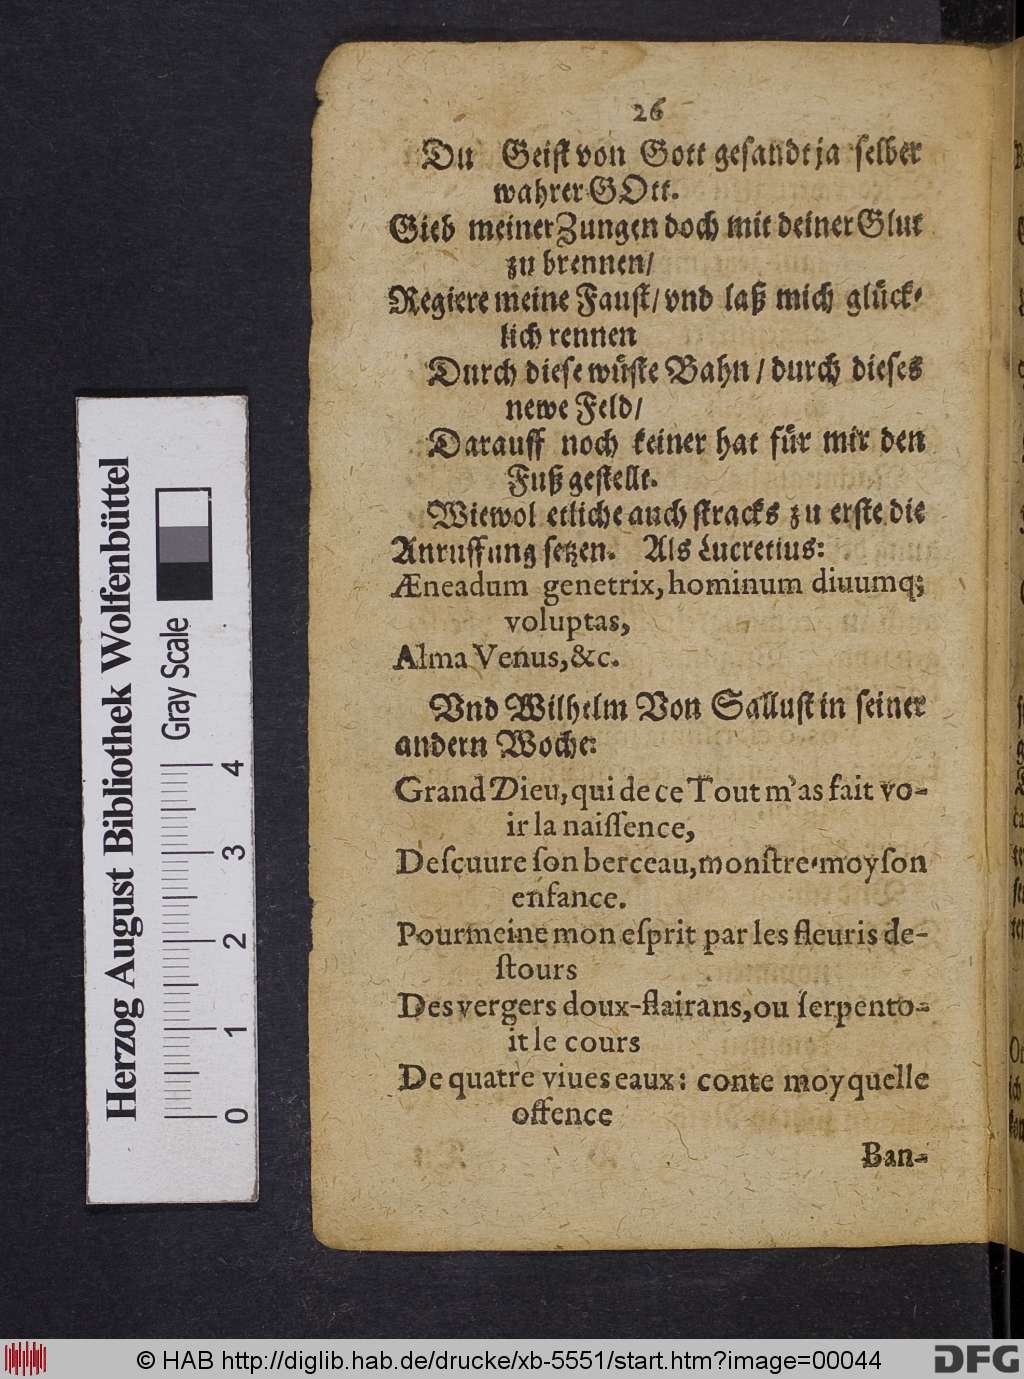 26
Du Geist von Gott gesandt ja selber
wahrer GOtt.
Gieb meiner Zungen doch mit deiner Glut
zu brennen/
Regiere meine Faust/ vnd laß mich glück-
lich rennen
Durch diese wüste Bahn/ durch dieses
newe Feld/
Darauff noch keiner hat für mir den
Fuß gestellt.
Wiewol etliche auch stracks zu erste die
Anruffung setzen. Als Lucretius:
Æneadum genetrix, hominum diuumq;
voluptas,
Alma Venus, &c.
Vnd Wilhelm Von Sallust in seiner
andern Woche:
Grand Dieu, qui de ce Tout m'as fait vo-
ir la naiſſence,
Deſcuure ſon berceau, monſtre-moy ſon
enfance.
Pourmeine mon eſprit par les fleuris de-
ſtours
Des vergers doux-flairans, ou ſerpento-
it le cours
De quatre viues eaux: conte moy quelle
offence
Ban-
Herzog August Bibliothek Wolfenbüttel
Gray Scale
0 1 2 3 4
© HAB http://diglib.hab.de/drucke/xb-5551/start.htm?image=00044
DFG